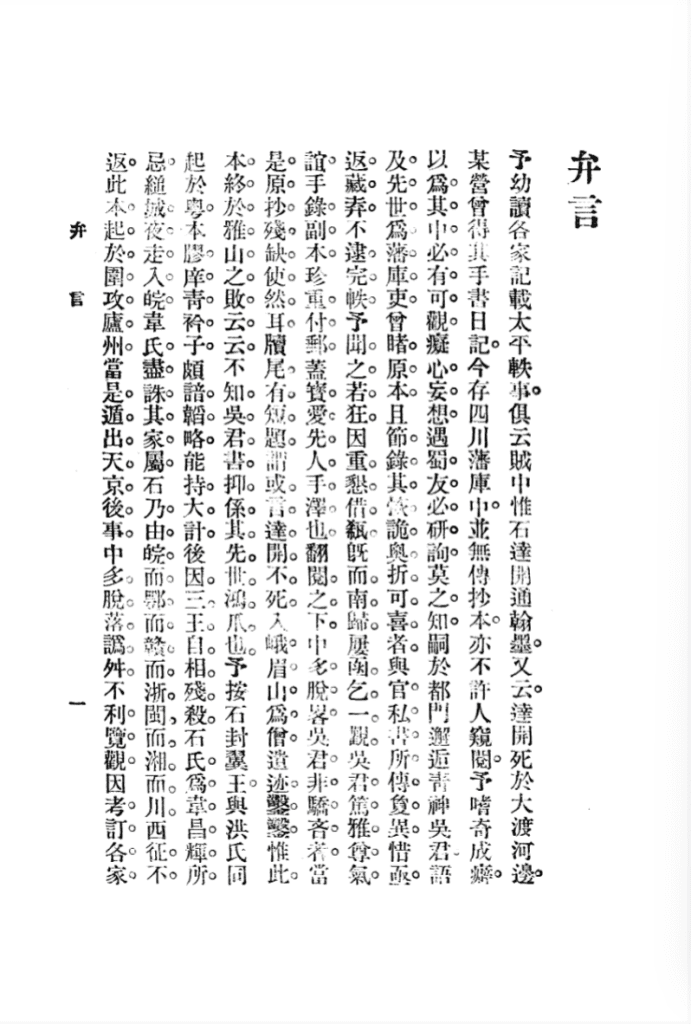 弁言
予幼讀各家記載太平軼事。俱云賊中惟石達開通翰墨。又云。達開死於大渡河邊。
某營曾得其手書日記。今存四川藩庫中。並無傳抄本。亦不許人窺閱。予嗜奇成癖。
以爲其中必有可觀。癡心妄想。遇蜀友必研詢。莫之知。嗣於都門邂逅青神吳君。語
及先世爲藩庫吏。曾睹原本。且節錄其詼詭與折可喜者。與官私書所傳敻異。惜亟
返。藏弆不逮完帙。予聞之若狂。因重懇借瓻。旣而南歸。屢函乞一覬。吳君篤雅尊氣
誼。手錄副本。珍重付郵。蓋寶愛先人手澤也。翻閱之下。中多脫畧。吳君非驕吝者。當
是原抄殘缺使然耳。牘尾有短題。謂或言達開不死。入峨眉山爲僧。遺迹鑿鑿。惟此
本終於雅山之敗云云。不知吳君書抑係其先世鴻爪也。予按石封翼王。與洪氏同
起於粵。本膠庠青衿子。頗諳韜略。能持大計。後因三王自相殘殺。石氏爲韋昌輝所
忌。縋城夜走入皖。韋氏盡誅其家屬。石乃由皖而鄂而贛而浙閩而湘而川。西征不
返。此本起於圍攻廬州。當是遁出天京後事。中多脫落譌舛。不利覽觀。因考訂各家
弁
言
一